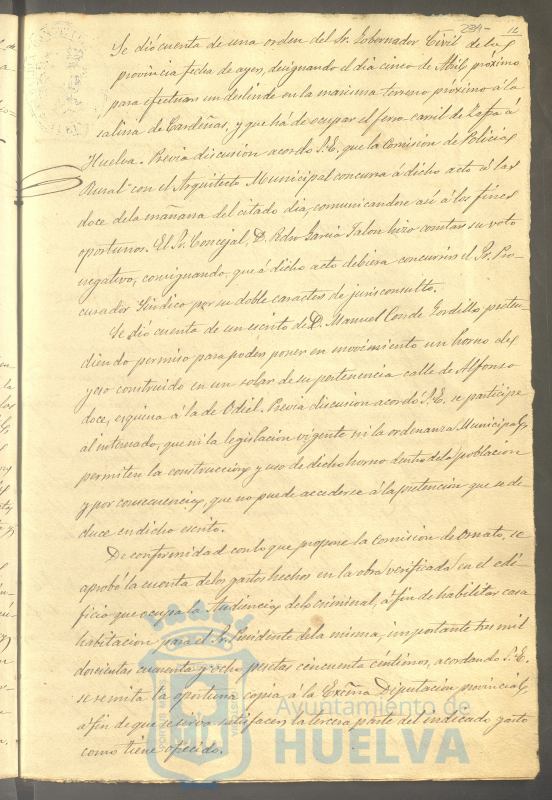 234 16
Se dió cuenta de una orden del Sr. Gobernador Civil de la
provincia fecha de ayer, designando el dia cinco de Abril próximo
para efectuar un deslinde en la marisma terreno próximo á la
salina de Cardeñas, y que há de ocupar el ferro carril de Zafra á
Huelva. Previa discusion acordó S.E. que la Comision de Policia
Rural con el Arquitecto Municipal concurra á dicho acto á las
doce de la mañana del citado dia, comunicandose así á los fines
oportunos. El Sr. Concejal, D. Pedro Garcia Jalon hizo constar su voto
negativo, consignando, que á dicho acto debiera concurrir el Sr. Pro-
curador Síndico por su doble caracter de jurisconsulto.
Se dió cuenta de un escrito de D. Manuel Conde Gordillo preten-
diendo permiso para poder poner en movimiento un horno de
yeso construido en un solar de su pertenencia calle de Alfonso
doce, esquina á la de Odiel. Previa discusion acordó S.E. se participe
al interesado, que ni la legislacion vigente ni la ordenanza Municipal
permiten la construccion y uso de dicho horno dentro de la poblacion
y por consecuencia, que no puede accederse á la pretencion que se de-
duce en dicho escrito.
De conformidad con lo que propone la Comision de Ornato, se
aprobó la cuenta de los gastos hechos en la obra verificada en el edi-
ficio que ocupa la Audiencia de lo criminal, á fin de habilitar casa
habitacion para el Sr. Presidente de la misma, importante tres mil
doscientas cuarenta y ocho pesetas cincuenta céntimos, acordando S.E.
se remita la oportuna copia á la Excma Diputacion provincial
á fin de que se sirva satisfacer la tercera parte del indicado gasto
como tiene ofrecido.
Ayuntamiento de
HUELVA